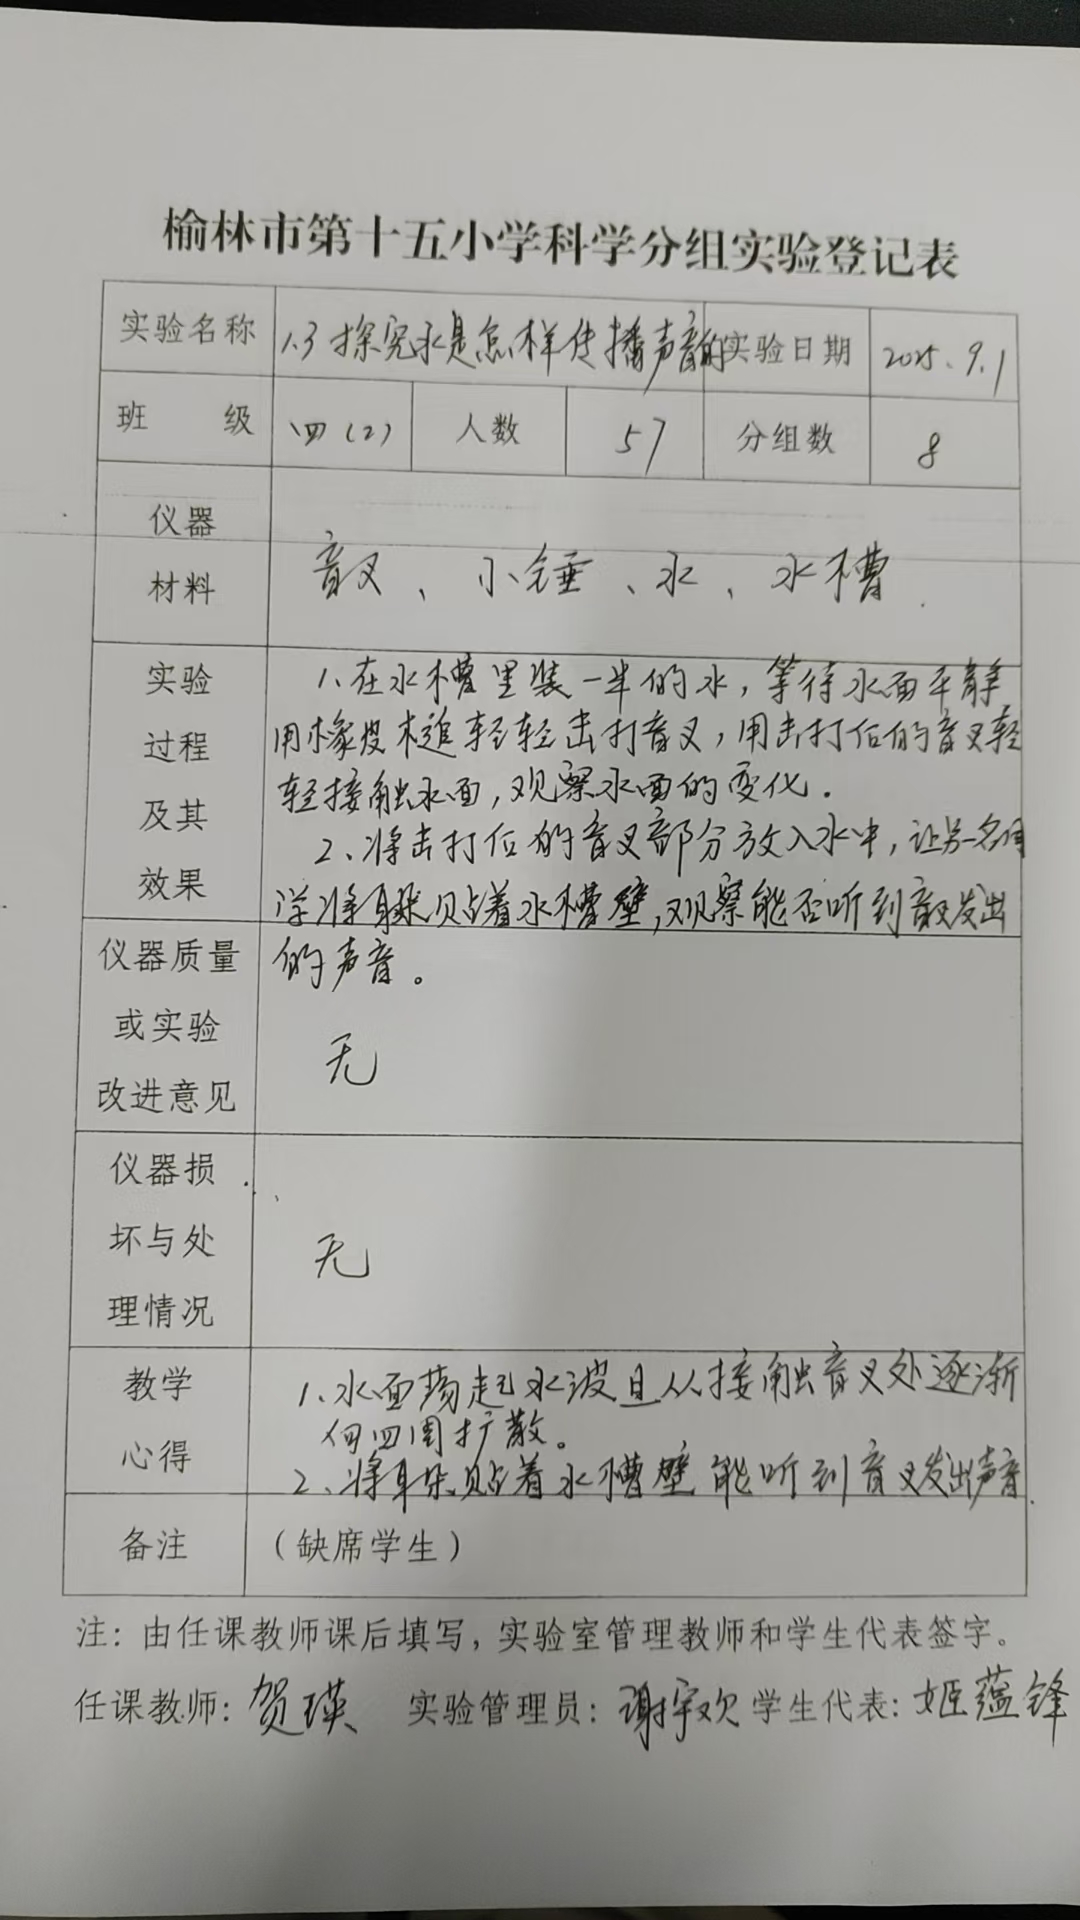 榆林市第十五小学科学分组实验登记表
实验名称 1.3探究水是怎样传播声音的 实验日期 2025.9.1
班 级 四(2) 人数 57 分组数 8
仪器
材料
音叉、小锤、水、水槽.
实验
过程
及其
效果
1、在水槽里装一半的水，等待水面平静
用橡皮槌轻轻击打音叉，用击打后的音叉轻
轻接触水面，观察水面的变化.
2、将击打后的音叉部分放入水中，让另一名同
学将耳朵贴着水槽壁，观察能否听到音叉发出
的声音。
仪器质量
或实验
改进意见
无
仪器损
坏与处
理情况
无
教学
心得
1、水面荡起水波且从接触音叉处逐渐
向四周扩散。
2、将耳朵贴着水槽壁能听到音叉发出声音.
备注 (缺席学生)
注：由任课教师课后填写，实验室管理教师和学生代表签字。
任课教师：贺瑛 实验管理员：谢宇欢 学生代表：姬蕴锋